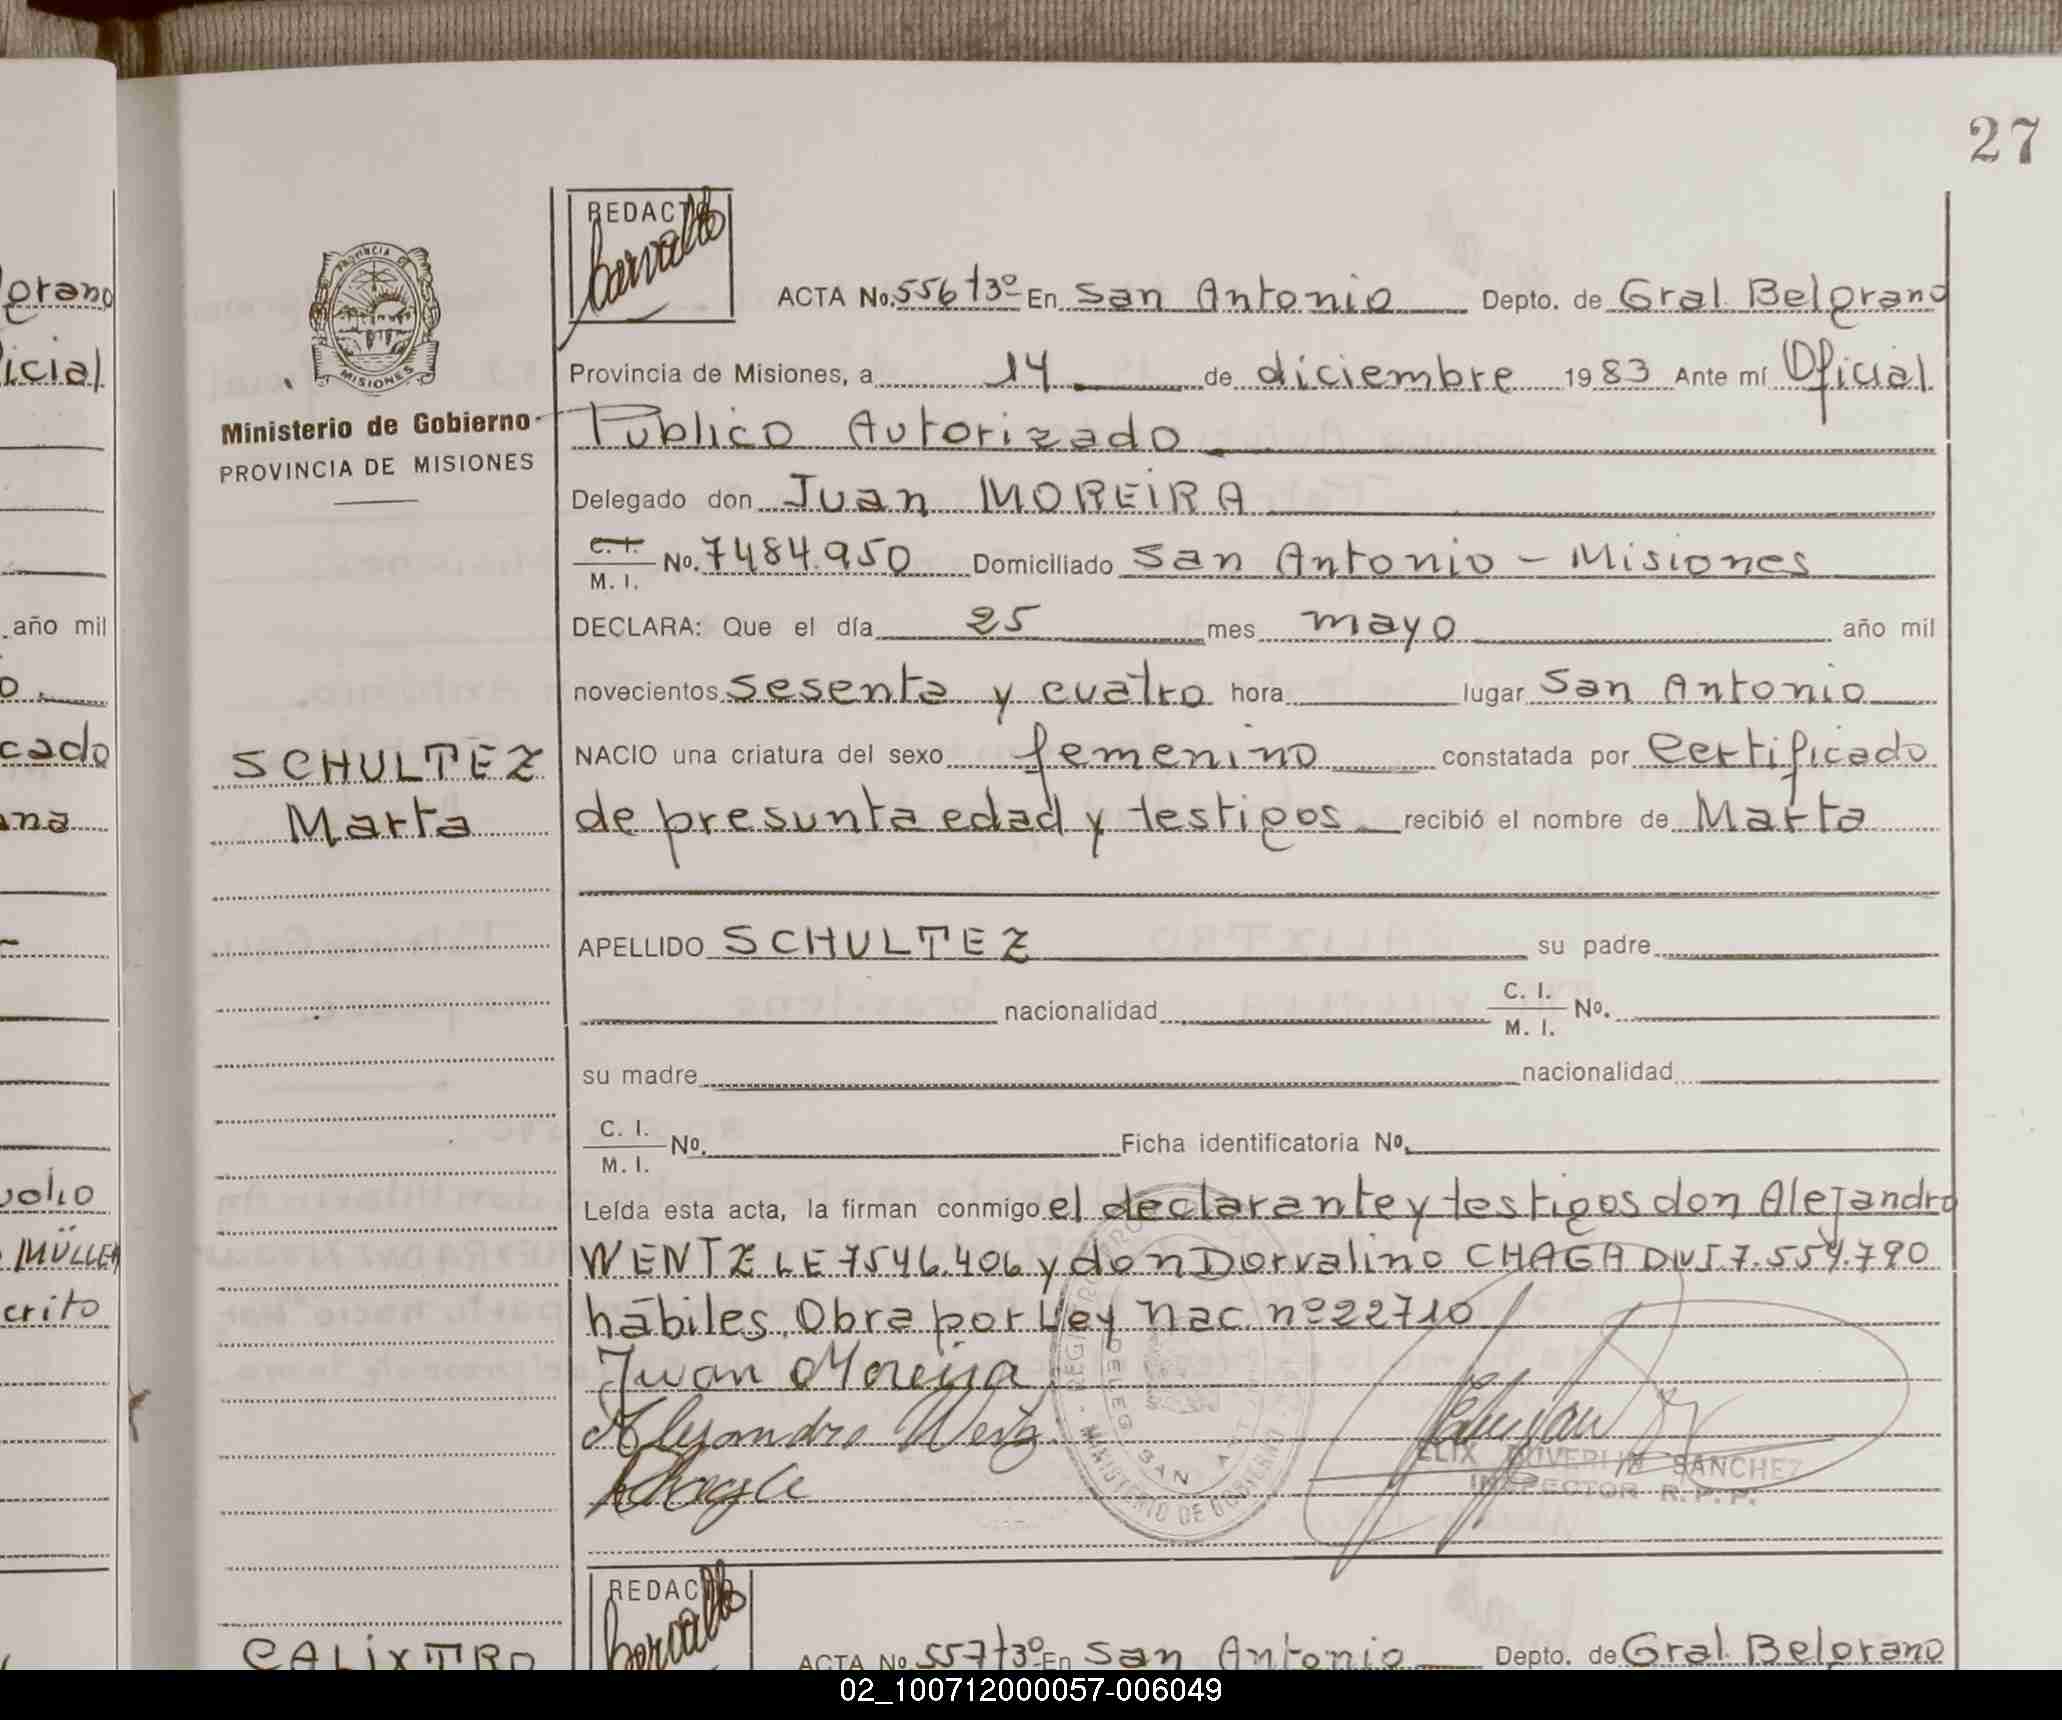 27
REDACTO
ACTA No. 556 t3º En San Antonio Depto. de Gral. Belgrano
PROVINCIA DE MISIONES
Ministerio de Gobierno
PROVINCIA DE MISIONES
Provincia de Misiones, a 14 de diciembre 1983 Ante mí Oficial
Público Autorizado
Delegado don Juan MOREIRA
C. I. / M. I. No. 7484.950 Domiciliado San Antonio - Misiones
DECLARA: Que el día 25 mes mayo año mil
novecientos sesenta y cuatro hora lugar San Antonio
SCHULTEZ
Marta
NACIO una criatura del sexo femenino constatada por Certificado
de presunta edad y testigos recibió el nombre de Marta
APELLIDO SCHULTEZ su padre
nacionalidad C. I. / M. I. No.
su madre nacionalidad
C. I. / M. I. No. Ficha identificatoria No.
Leída esta acta, la firman conmigo el declarante y testigos don Alejandro
WENTZ LE 7546.406 y don Dorvalino CHAGA DNI 7.554.790
hábiles. Obra por Ley Nac. nº 22710
Juan Moreira
Alejandro Wentz
SANCHEZ
INSPECTOR R. P. P.
MINISTERIO DE GOBIERNO
REDACTO
CALIXTRO
ACTA No. 557 t3º En San Antonio Depto. de Gral. Belgrano
grano
icial
año mil
cado
MÜLLER
crito
02_100712000057-006049